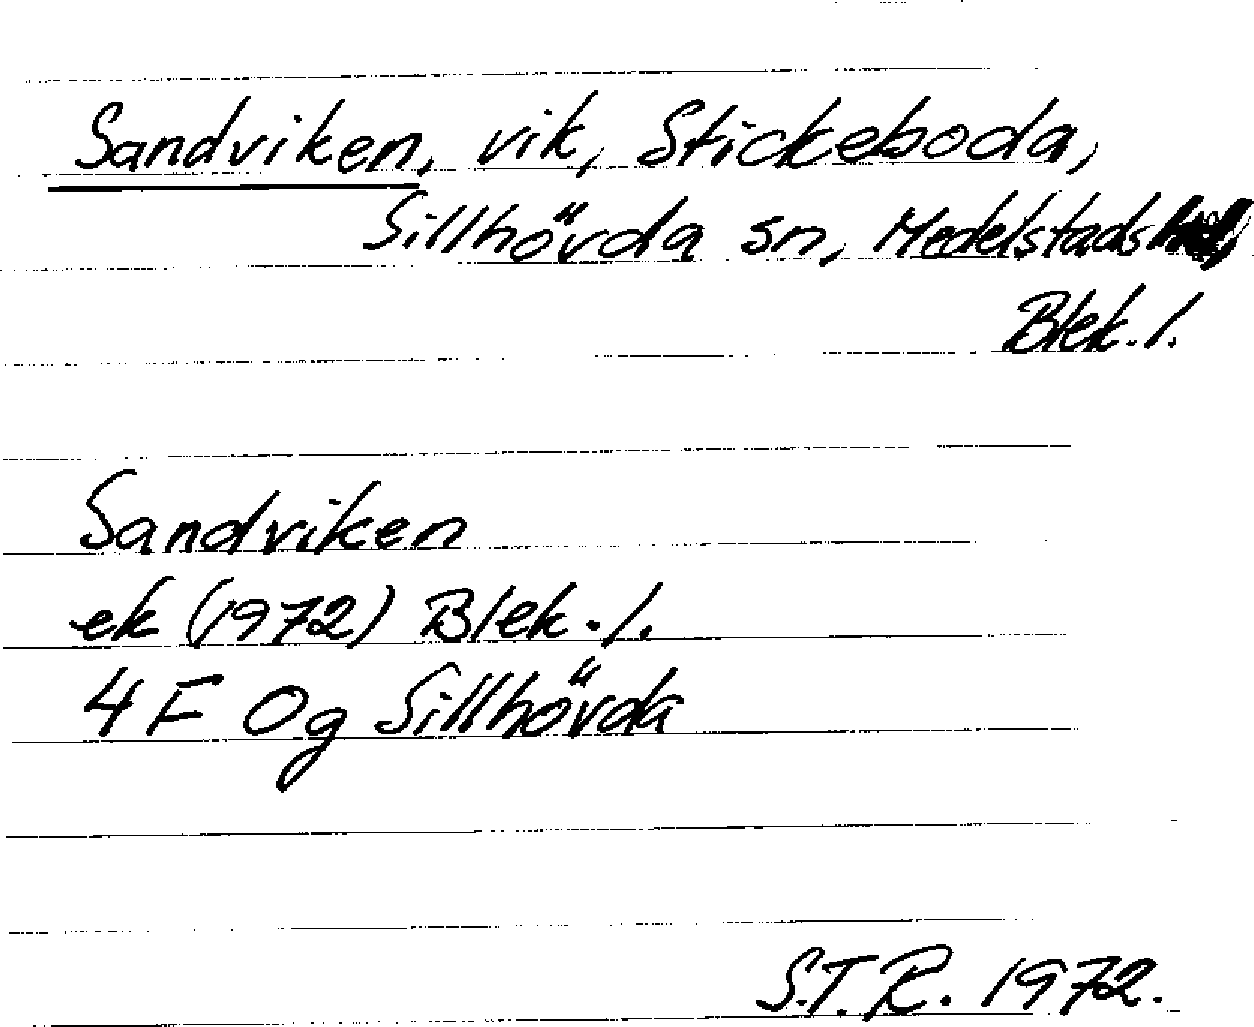 Sandviken, vik, Stickeboda,
Sillhövda sn, Medelstads
Blek. l.
Sandviken
ek (1972) Blek. l.
4F 0g Sillhövda
S.T.R. 1972.